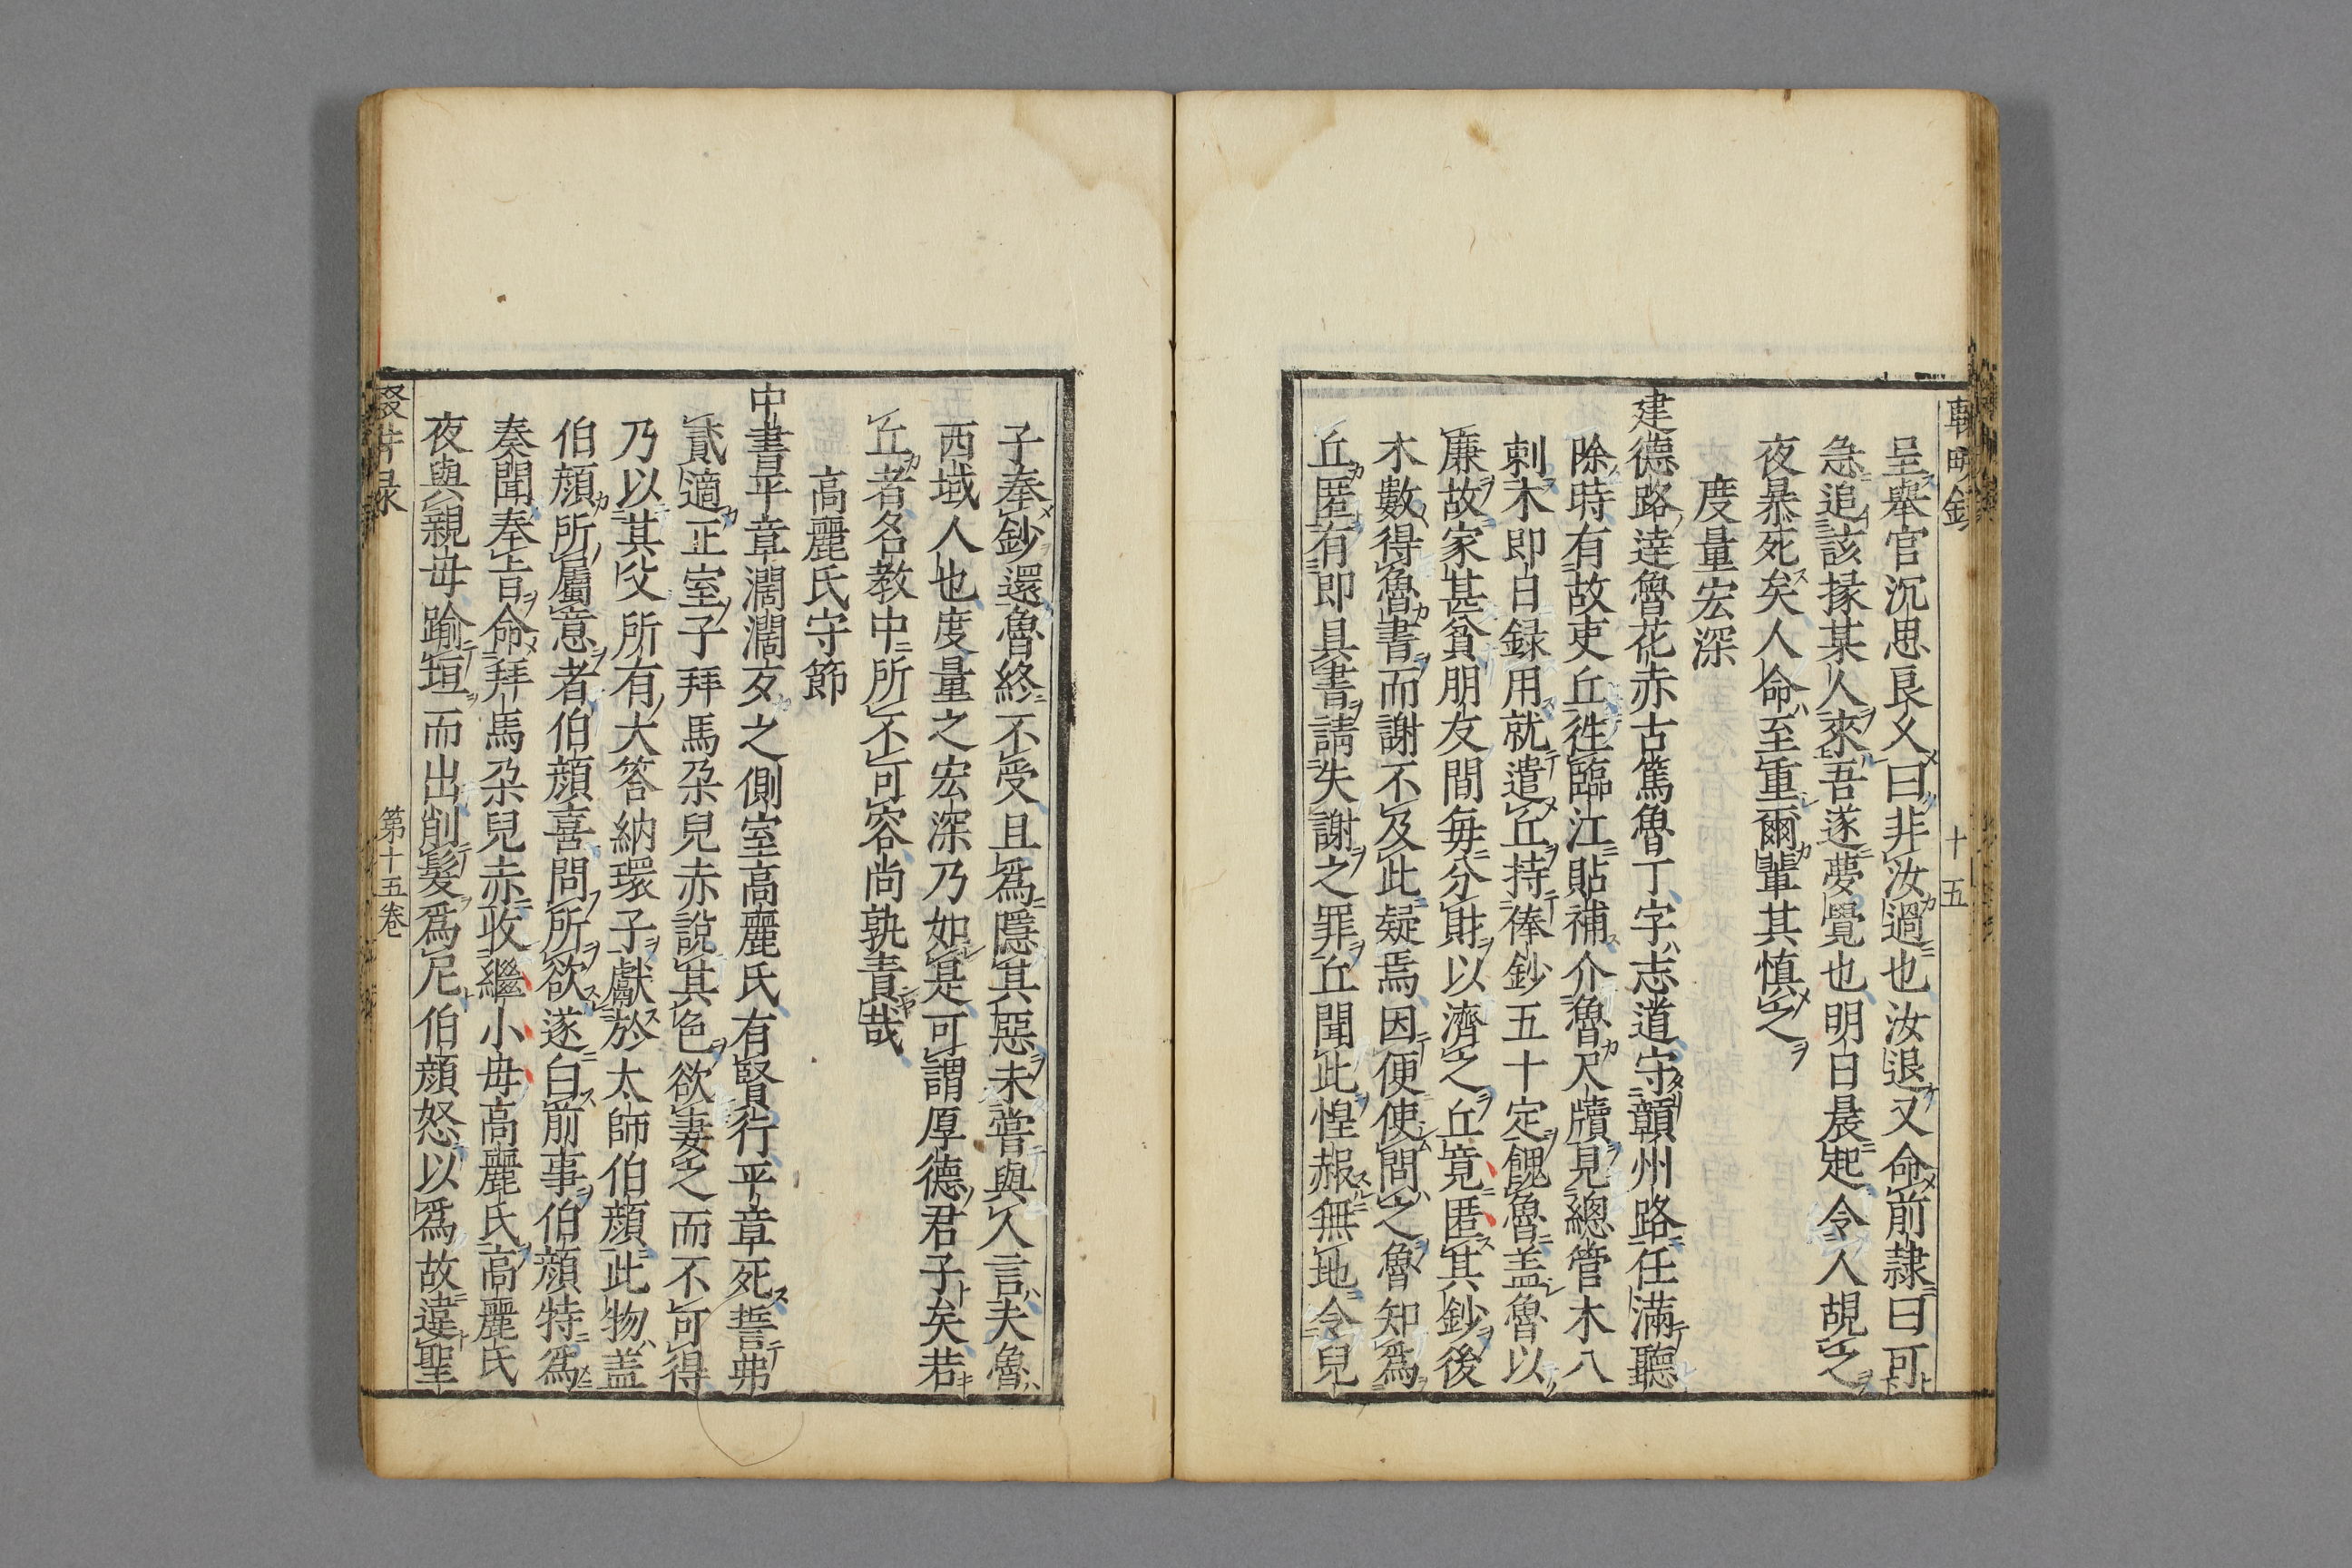 呈舉官沉思良乆曰非汝過也汝退又命前隷曰可
急追該掾某人來吾遂夢覺也明白晨起令人覘之
夜暴死矣人命至重爾輩其慎之
度量宏深
建德路達魯花赤古篤魯丁字志道守贛州路任滿聽
除時有故吏丘徃臨江貼補介魯尺牘見總管木八
剌木即白録用就遣丘持俸鈔五十定餽魯盖魯以
廉故家甚貧朋友間每分財以濟之丘竟匿其鈔後
木數得魯書而謝不及此疑焉因便使問之魯知爲
丘匿有即具書請失謝之罪丘聞此惶赧無地令兒
子奉鈔還魯終不受且爲隱其惡未甞與人言夫魯
西域人也度量之宏深乃如是可謂厚德君子矣若
丘者名教中所不可容尚孰責哉
高麗氏守節
中書平章濶濶歹之側室高麗氏有賢行平章死誓弗
貳適正室子拜馬朶兒赤說其色欲妻之而不可得
乃以其父所有大答納環子獻於太師伯顔此物盖
伯顔所屬意者伯顔喜問所欲遂白前事伯顔特爲
奏聞奉旨命拜馬朶兒赤收繼小毋高麗氏高麗氏
夜與親毋踰垣而出削髮爲尼伯顔怒以爲故違聖
第十五卷
十五